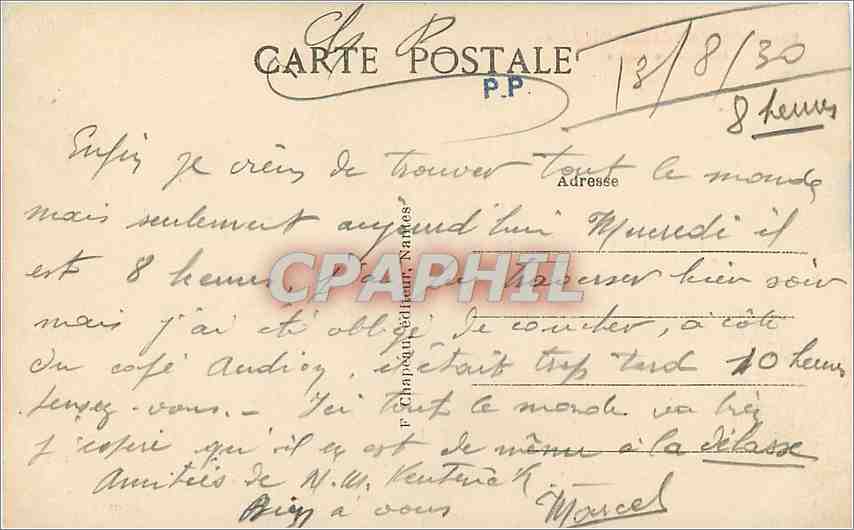 CARTE POSTALE
P.P
13/8/30
8 heures
Enfin je viens de trouver tout le monde
Adresse
mais seulement aujourd'hui Mercredi il
est 8 heures, J'ai pu traverser hier soir
mais j'ai été obligé de coucher, à côté
du café Audion, c'était trop tard 10 heures
pensez-vous. - Ici tout le monde va bien
j'espère qu'il en est de même à la délasse
Amitiés de M.M.
Bien à vous Marcel
F. Chapeau, éditeur, Nantes
CPAPHIL